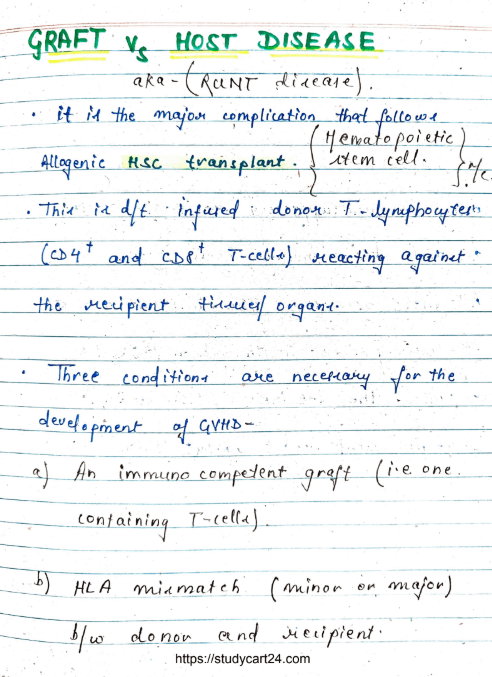 GRAFT Vs HOST DISEASE
aka - (RUNT disease).
• it is the major complication that follows
Allogenic HSC transplant. { Hematopoietic
stem cell. } M/C
• This is d/t infused donor T-lymphocytes
(CD4+ and CD8+ T-cells) reacting against
the recipient tissues/organs.
• Three conditions are necessary for the
development of GVHD-
a) An immuno competent graft (i.e one
containing T-cells).
b) HLA mismatch (minor or major)
b/w donor and recipient.
https://studycart24.com